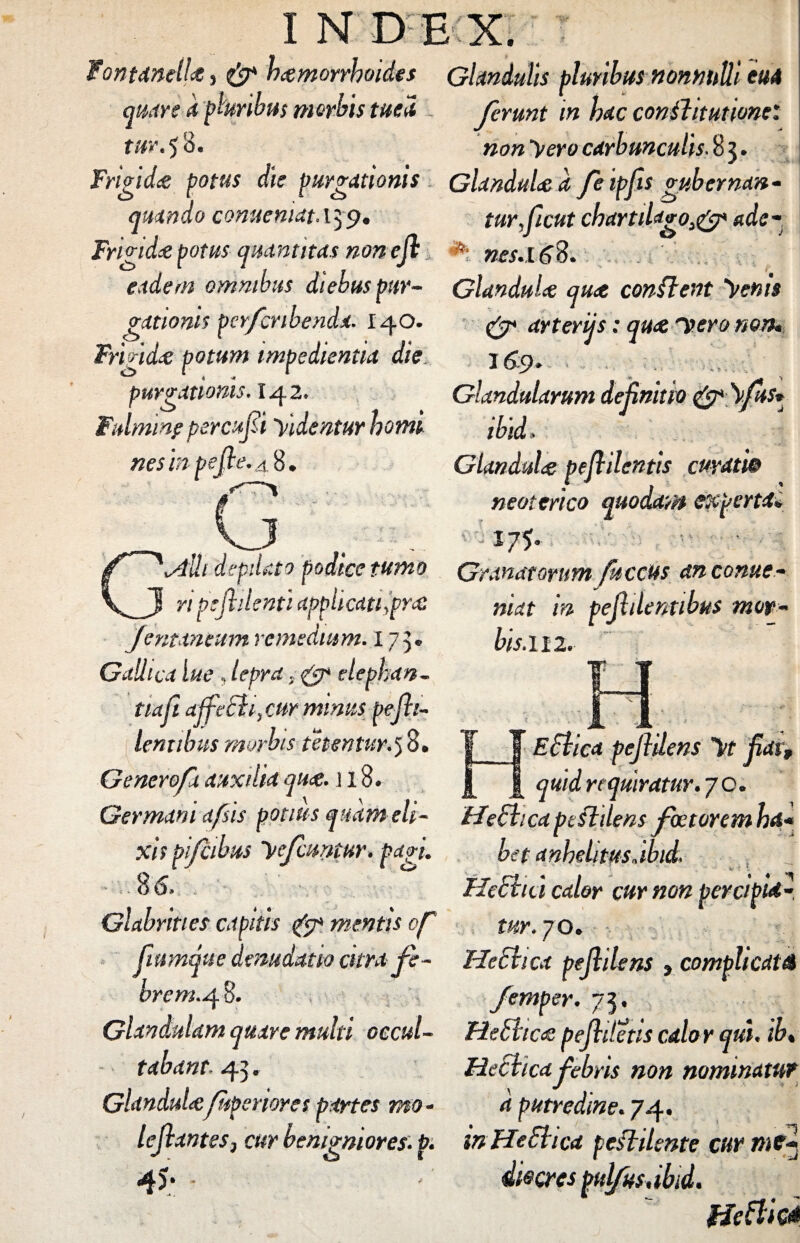 INDEX.
Fontanellæ, & hæmorrhoides
quare à pluribus morbis tueā
tur. 58.
Frigidæ potus die purgationis
quando conueniat. 139.
Frigidæ potus quantitas non eſt
eadem omnibus diebus pur-
gationis perſcribenda. 140.
Frigidæ potum impedientia die
purgationis. 142.
Fulmine percuſsi videntur homi
nes in peſte. 48.
G
GAlli depilato podice tumo
ri peſtilenti applicati, præ
ſentaneum remedium. 173.
Gallica lue, lepra, & elephan-
tiaſi affecti, cur minus peſti-
lentibus morbis tētentur. 58.
Generoſa auxilia quæ. 118.
Germani aſsis potiùs quàm eli-
xis piſcibus veſcuntur. pagi.
86.
Glabrities capitis & mentis oſ
ſiumque denudatio citra fe-
brem. 48.
Glandulam quare multi occul-
tabant. 43.
Glandulæ ſuperiores partes mo-
leſtantes, cur benigniores. p.
45.
Glandulis pluribus nonnulli euā
ſerunt in hac conſtitutione:
non vero carbunculis. 83.
Glandulæ à ſe ipſis gubernan-
tur, ſicut chartilago, & ade-
nes. 168.
Glandulæ quæ conſtent venis
& arterijs: quæ vero non.
169.
Glandularum definitio & vſus.
ibid.
Glandulæ peſtilentis curatio
neoterico quodam experta.
175.
Granatorum ſuccus an conue-
niat in peſtilentibus mor-
bis. 112.
H
HEctica peſtilens vt fiat,
quid requiratur. 70.
Hectica peſtilens fœtorem ha-
bet anhelitus. ibid.
Hectici calor cur non percipia-
tur. 70.
Hectica peſtilens, complicata
ſemper. 73.
Hecticæ peſtilētis calor qui. ib.
Hectica febris non nominatur
à putredine. 74.
in Hectica peſtilente cur me-
diocres pulſus. ibid.
Hectica